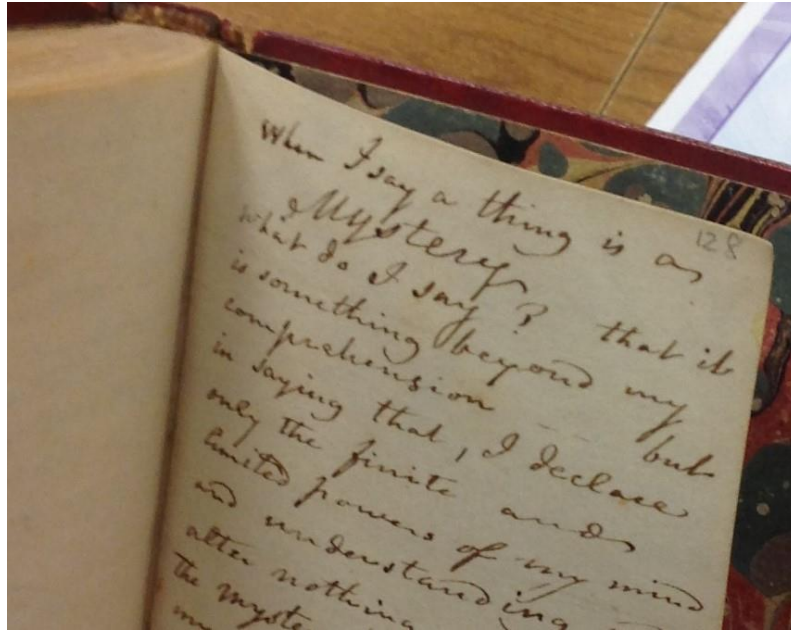 128
When I say a thing is a
Mystery
what do I say? that it
is something beyond my
comprehension -- but
in saying that, I declare
only the finite and
limited powers of my mind
and understanding
alter nothing
the